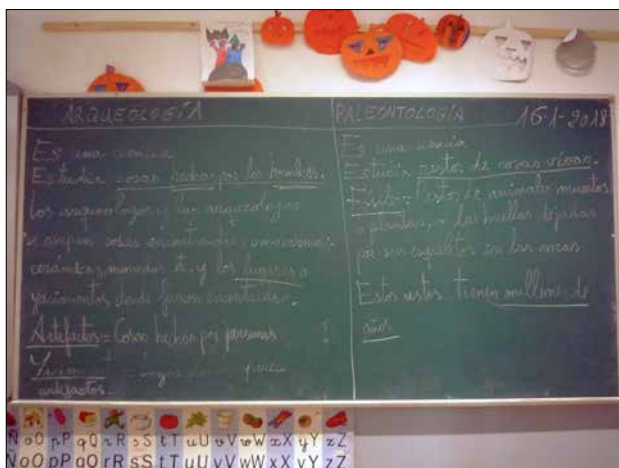 ARQUEOLOGÍA
Es una ciencia
Estudia cosas hechas por los hombres.
Los arqueólogos y las arqueólogas
cosas encontradas
cerámicas, monedas y los lugares o
yacimientos donde fueron
Artefactos = Cosas hechas por personas
artefactos.
PALEONTOLOGÍA 16-1-2018
Es una ciencia
Estudia restos de cosas vivas.
Fósil = Restos de animales muertos
o plantas, o las huellas dejadas
por sus esqueletos en las rocas
Estos restos tienen millones de
años
Ñ oO pP qQ rR sS tT uU vV wW xX yY zZ
Ñ oO pP qQ rR sS tT uU vV wW xX yY zZ